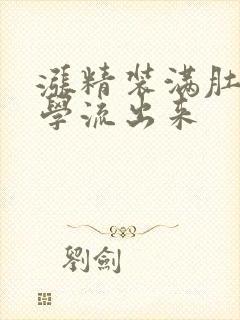 漲精装满肚
學流出来
劉劍